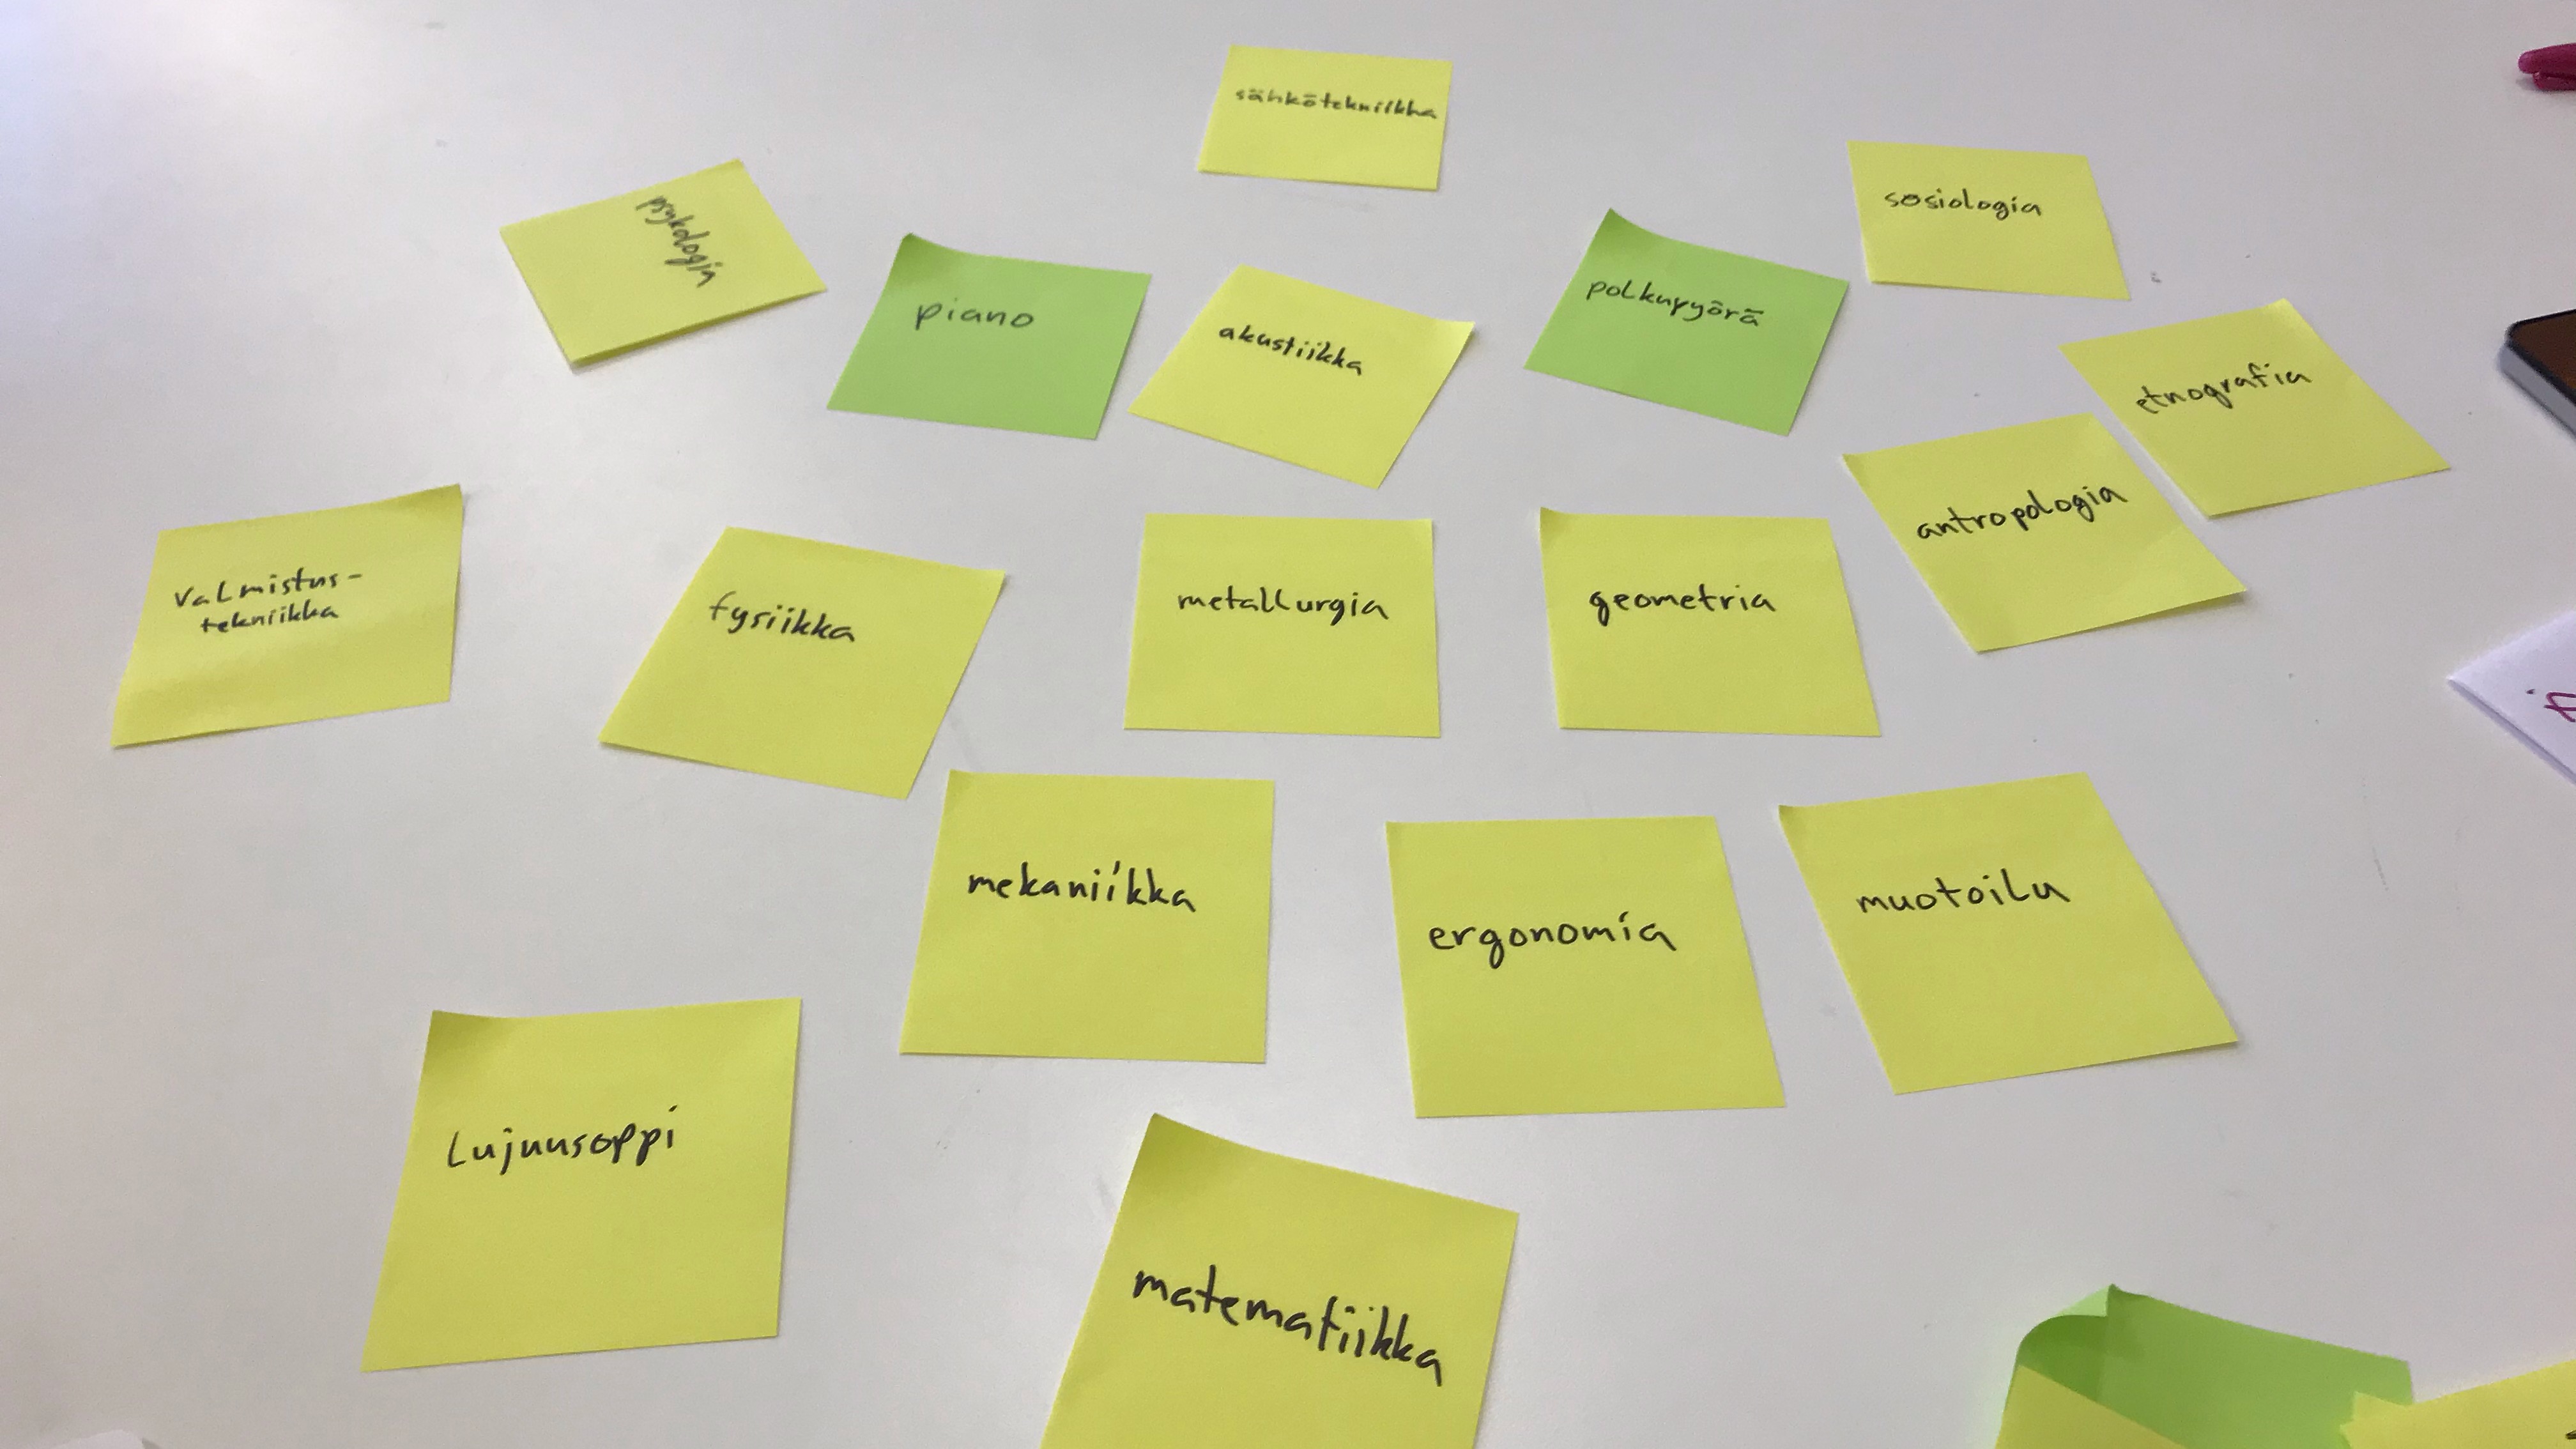 sähkötekniikka
psykologia
sosiologia
piano
akustiikka
polkupyörä
etnografia
antropologia
valmistus-
tekniikka
fysiikka
metallurgia
geometria
mekaniikka
ergonomia
muotoilu
Lujuusoppi
matematiikka